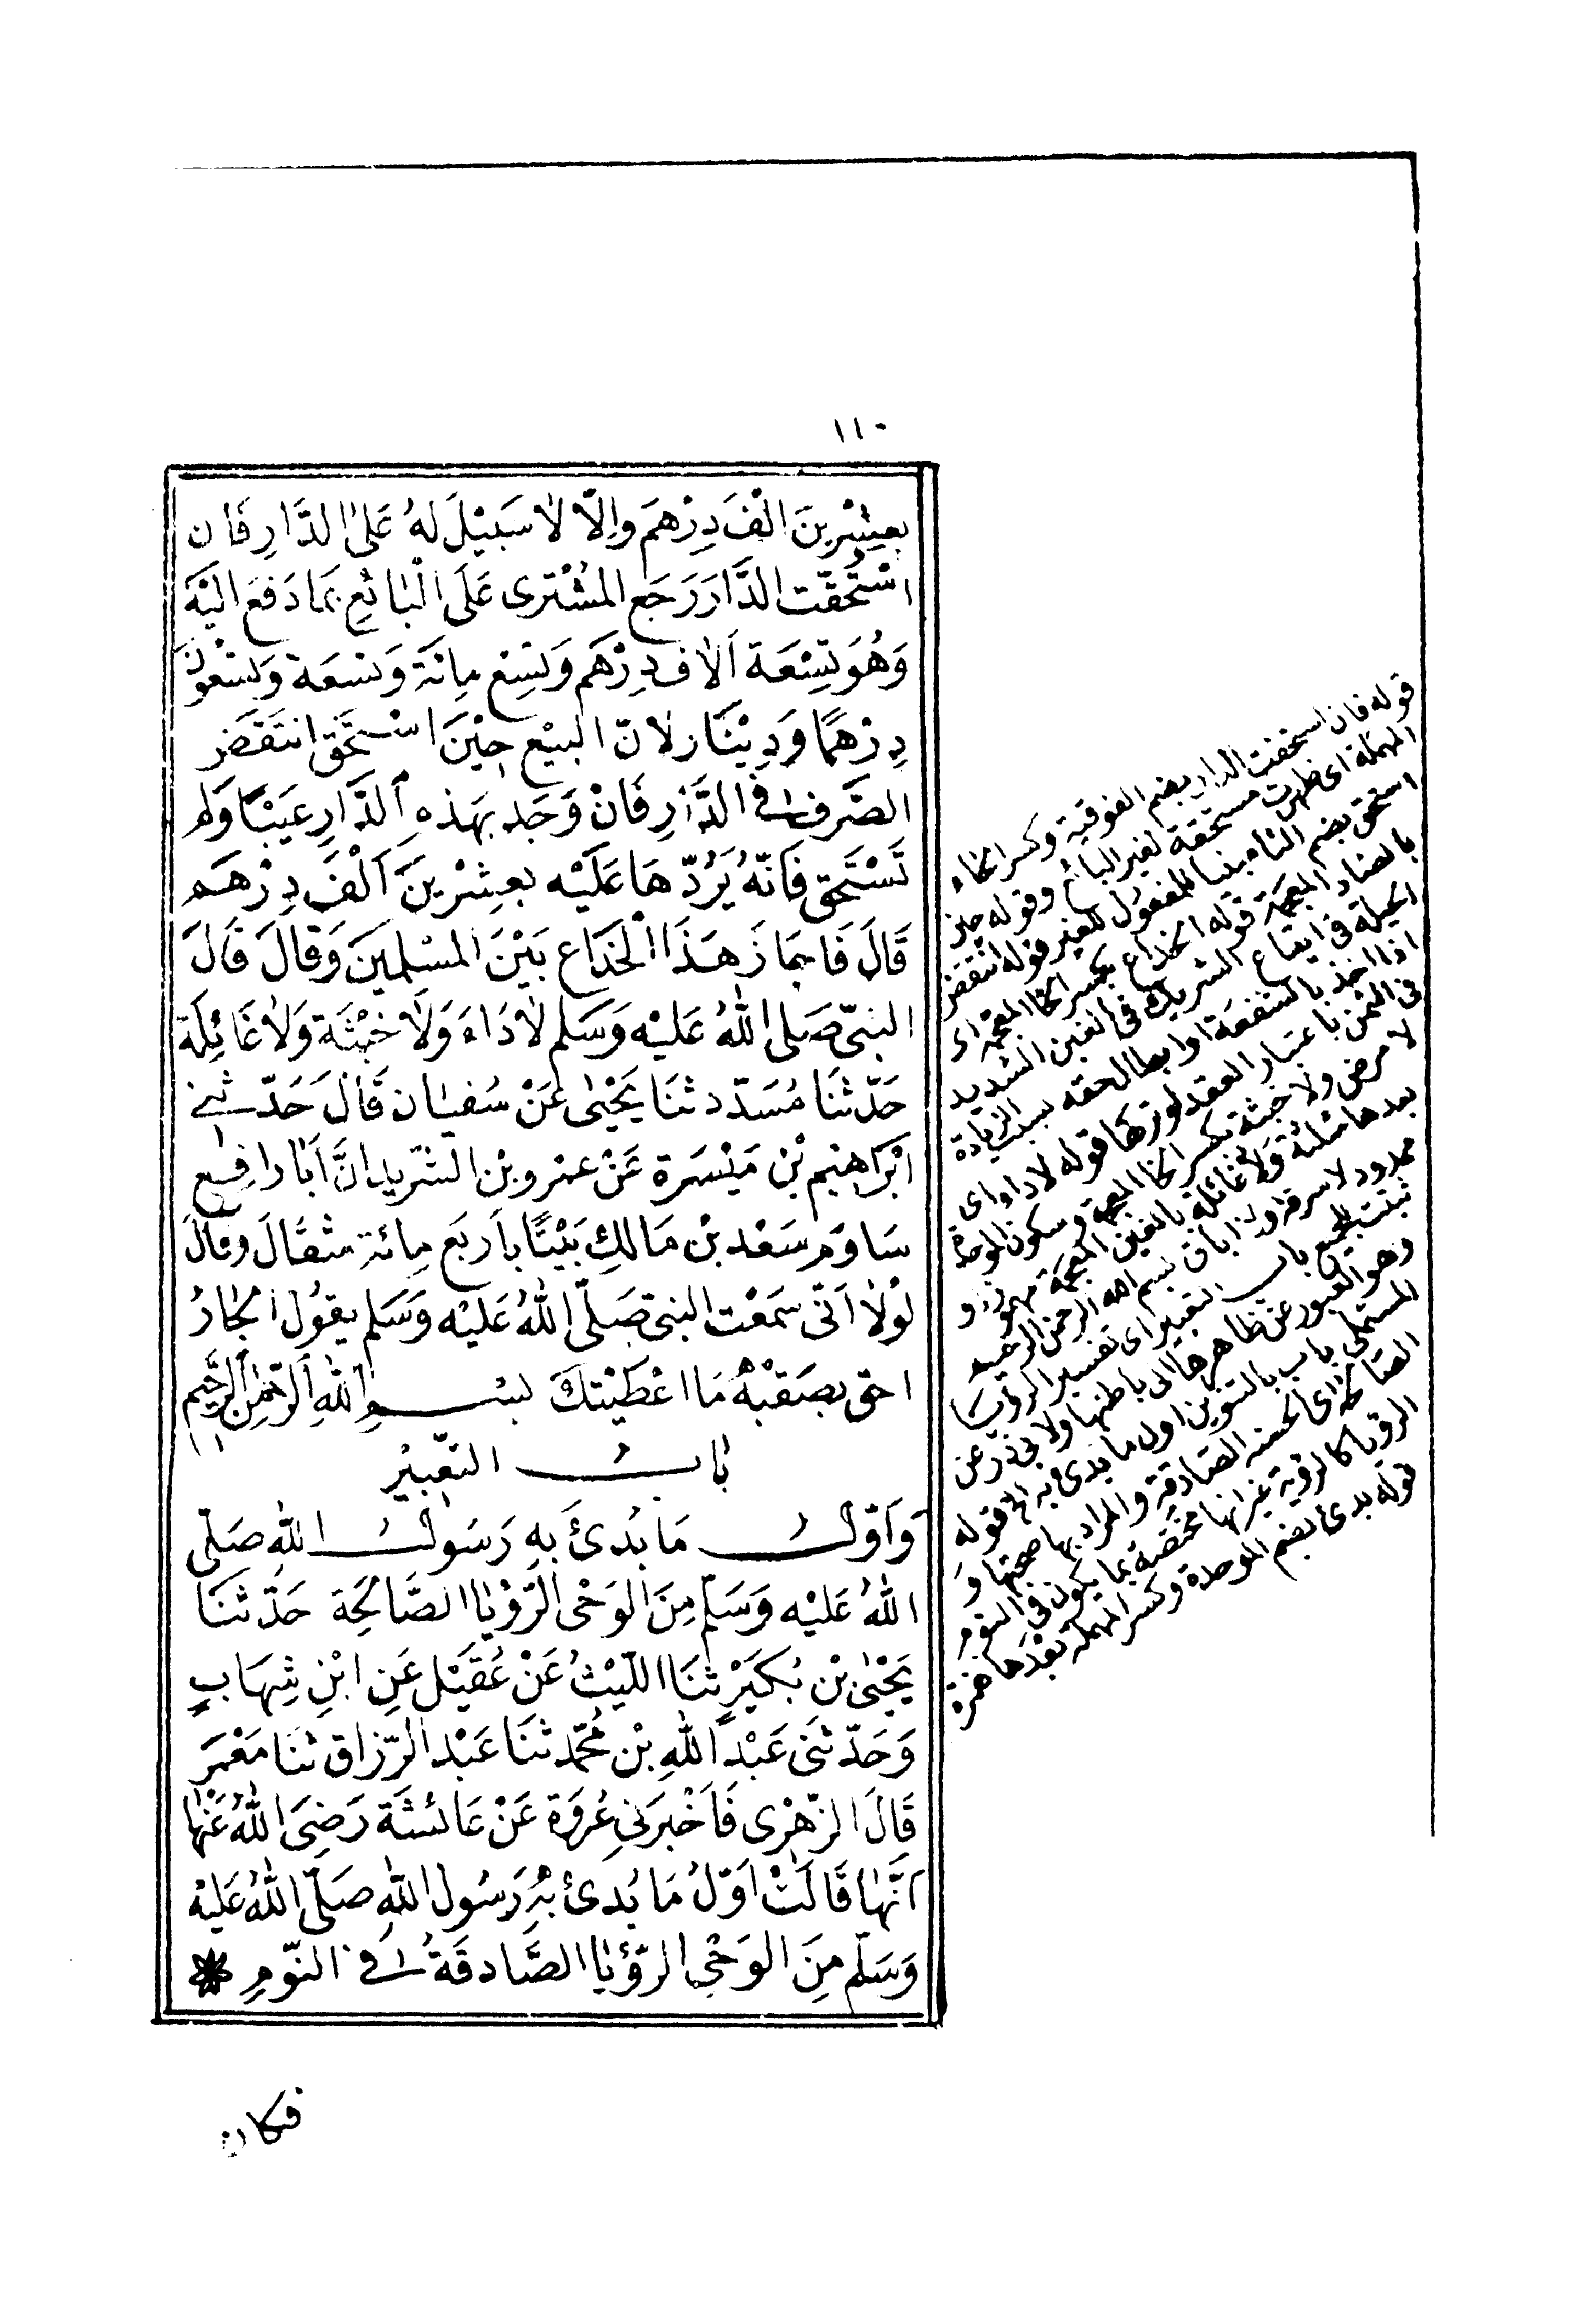 ١١٠
بِعِشْرِينَ اَلْفَ دِرْهَم وَاِلّا لاٰ سَبِيْلَ لَهُ عَلىَ الدَّارِ فَان
اسْتُحِقّت الدَّارَ رَجَع المُشْتَرِى عَلَى الْبَائِع بمَا دَفَعَ اليْهِ
وَهُوَ تِسْعَة اَلاٰف دِرْهَم وَتِسْع مِائَة وَتسعَة وَتسْعُونَ
دِرْهَمًا وَدِيْنَار لاٰنّ البيْع حِيْنَ اسْتحَقّ انتَقَضَ
الصَّرفُ فى الدَّارِ فَانْ وَجَد بهَذهِ الدَّارِ عَيْبًا وَلم
تَسْتَحَق فَانّهُ يَرُدّهَا عَلَيْه بعِشْرِينَ اَلْفَ دِرْهَم
قَالَ فَاجَازَ هَذَا الْخدَاع بَيْنَ المسْلمِينَ وَقالَ قَالَ
النبىّ صَلى اللهُ عَليْه وَسَلم لاٰ دَاءَ وَلاَ خِبْثَة وَلاٰ غَائِلَة
حَدّثنَا مُسَدّد ثنَا يَحْيىٰ عَنْ سُفيَان قَالَ حَدّثنى
ابْرَاهِيْم بْن مَيْسَرة عَنْ عمْرو بْن الشّرِيد انَّ اَبَا رَافِع
سَاوَم سَعْد بْن مَالك بَيْتًا باَربَع مِائة مثقالَ وقالَ
لَوْلاٰ اَنّى سَمعْت النبىّ صَلّى اللهُ عَليْه وَسَلم يقُول الجَارُ
احَق بصَقَبْهُ مَا اعْطَيْتكَ بسْم اللهِ الرّحْمٰنِ الرَّحِيم
بَابُ التّعْبِيْر
وَاَوّلُ مَا بُدئَ بهِ رَسُولُ اللهِ صَلّى
اللهُ عَليْه وَسَلّم مِنَ الوَحْى الرّؤْيَا الصَّالحَة حَدّثنَا
يَحْيىٰ بْن بُكَيْرٍ ثنَا اللّيْثُ عَنْ عُقَيْل عَنِ ابْنِ شِهَابٍ
وَحَدّثنى عَبْد اللهِ بْن مُحَمّد ثنَا عَبْد الرّزاق ثنَا مَعْمَر
قَالَ الزّهْرى فَاَخْبرَنىِ عُرْوَة عَنْ عَائشَة رَضِىَ اللهُ عَنْهَا
اَنّهَا قَالَتْ اَوّلُ مَا بُدئ بهِ رَسُول اللهِ صَلّى اللهُ عَليْه
وَسَلّم مِنَ الوَحْىِ الرّؤْيَا الصَّادقَةُ فى النّوْمِ
قوله فان استحقت الدار بضم الفوقية وكسر الحاء
المهملة اى ظهرت مستحقة لغير البائع وقوله حين
استحق بضم التاء مبنيا للمفعول للغير قوله انتقض
بالضاد المعجمة قوله الخداع بكسر الخا المعجمة اى
الحيلة فى ايقاع الشريك فى الغبن الشديد
اذا اخذ بالشفعة او ابطال حقه بسبب الزيادة
فى الثمن باعتبار العقد لو تركها قوله لا داء اى
لا مرض ولا خبثة بكسر الخا المعجمة وسكون الموحدة
بعدها مثلثة ولا غائلة بالغين المعجمة مهموز و
ممدود لا سرقة ولا اباق بسم الله الرحمن الرحيم
ثبتت للجميع باب التعبير اى تفسير الرؤيا
وهو العبور عن ظاهرها الى باطنها ولابى ذر عن
المستملى باب بالتنوين اول ما بدئ به الخ قوله
الصالحة اى الحسنة الصادقة والمراد بها صحتها و
الرؤيا كالرؤية غير انها مختصة بما يكون فى النوم
قوله بدئ بضم الموحدة وكسر المهملة بعدها همزة
فكان